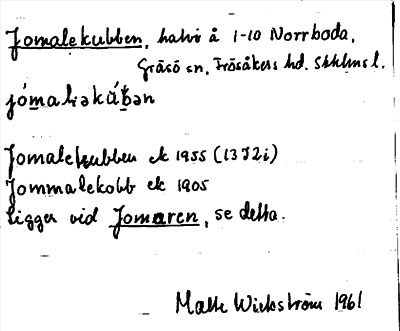 Jomalekubben, halvö å 1-10 Norrboda,
Gräsö sn, Frösåkers hd. Sthlms l.
Jomalekubben ek 1955 (13I2i)
Jommalekobb ek 1905
ligger vid Jomaren, se detta.
Mats Wickström 1961